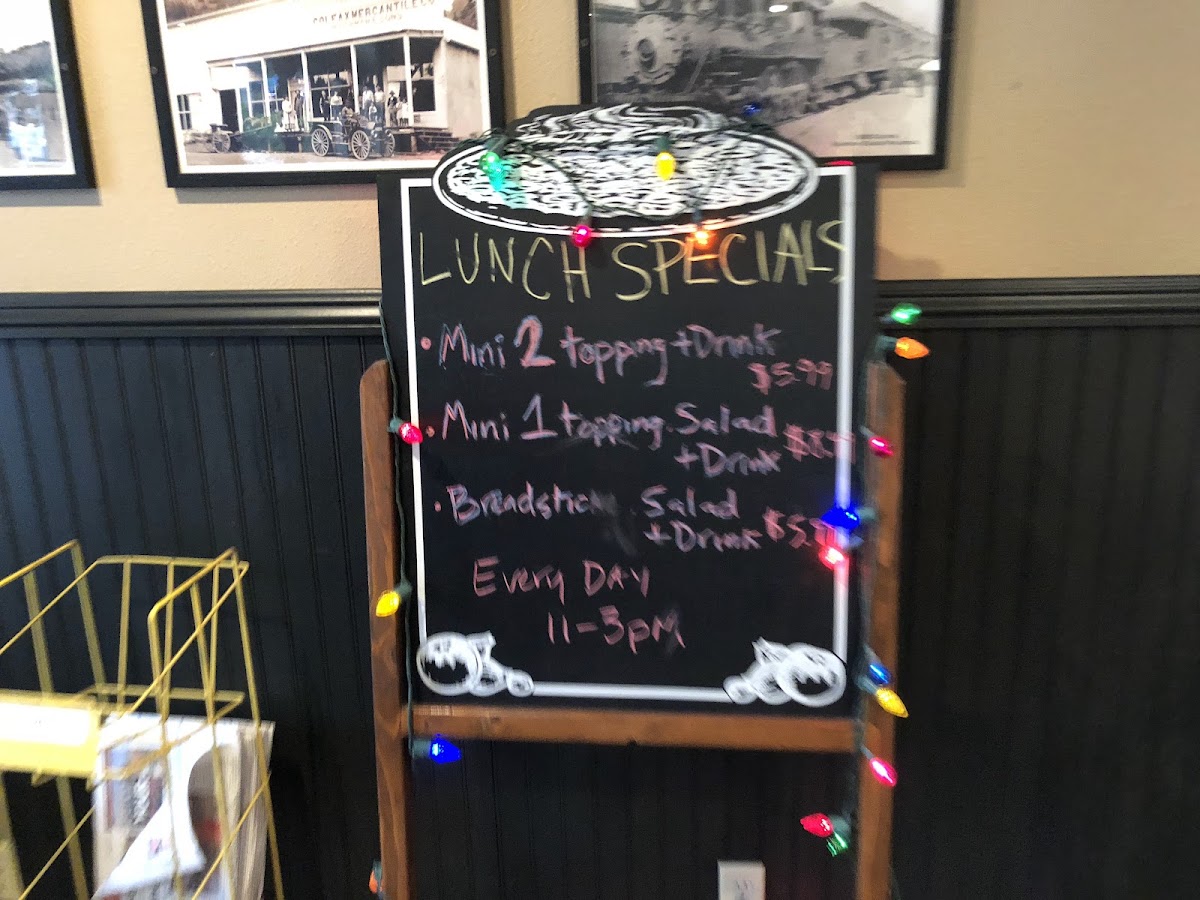 COLFAX MERCANTILE CO.
LUNCH SPECIALS
• Mini 2 topping + Drink
$5.99
• Mini 1 topping. Salad
+ Drink
• Breadstick . Salad
+ Drink
Every Day
11-3pm